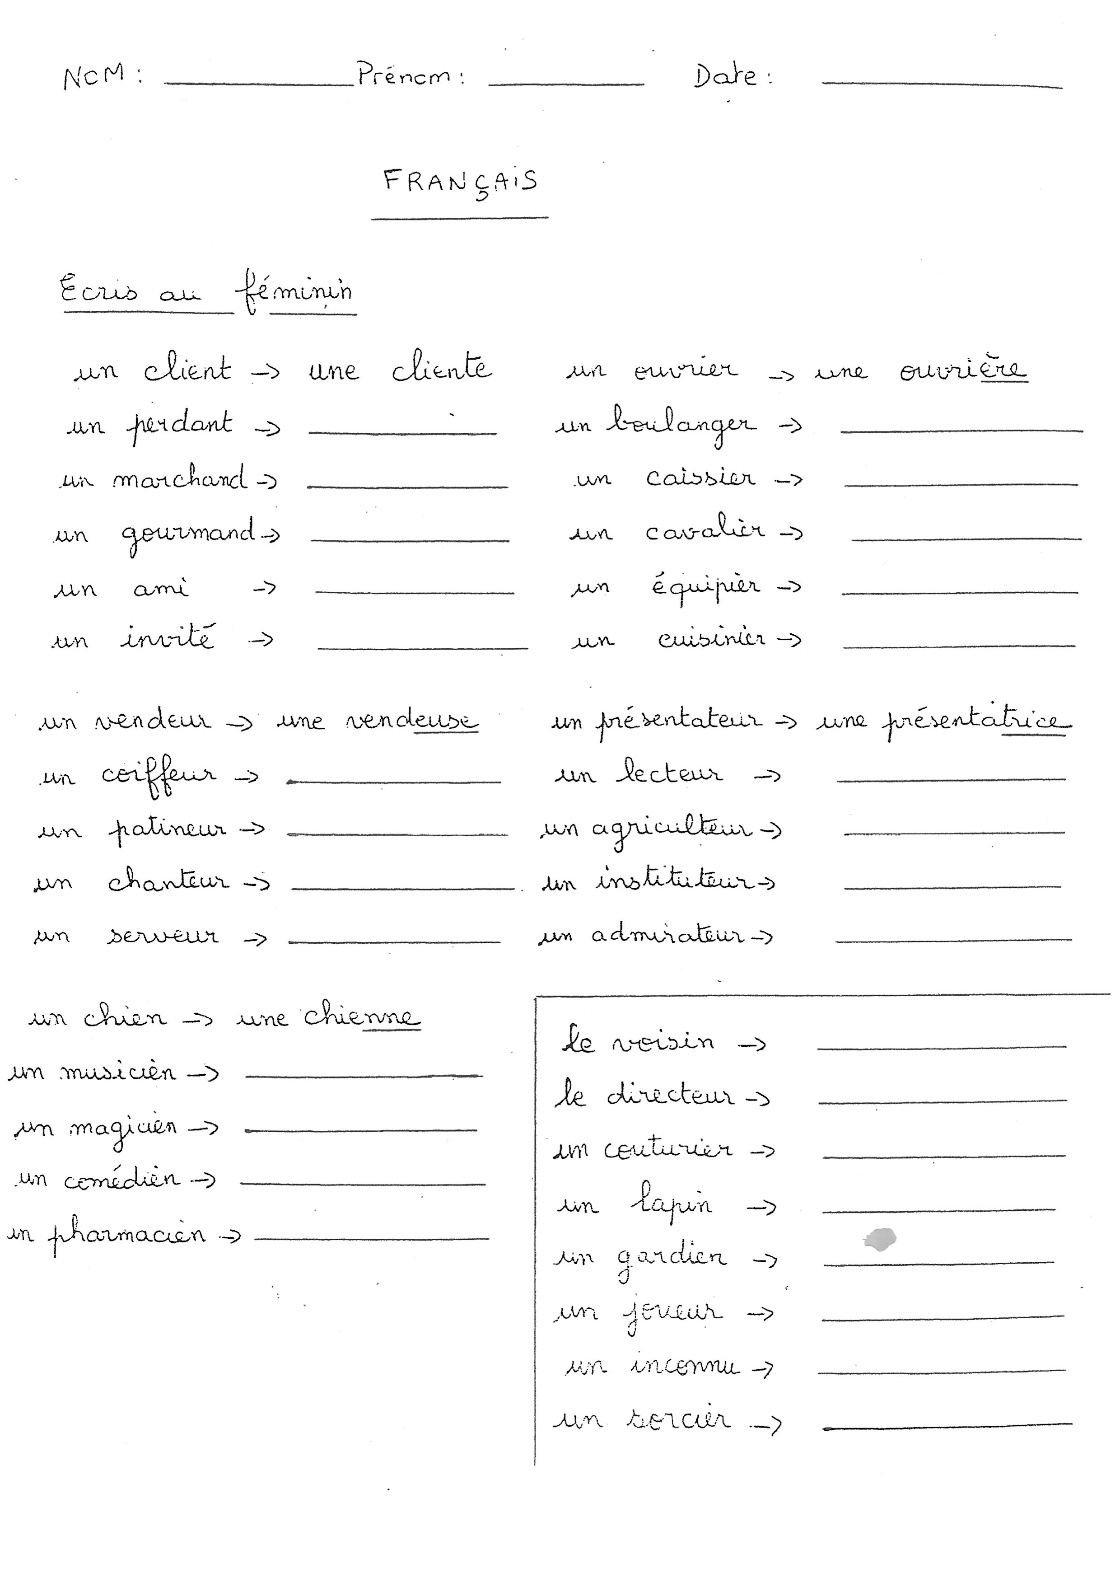 NOM : Prénom : Date :
FRANÇAIS
Ecris au féminin
un client -> une cliente
un perdant ->
un marchand ->
un gourmand ->
un ami ->
un invité ->
un ouvrier -> une ouvrière
un boulanger ->
un caissier ->
un cavalier ->
un équipier ->
un cuisinier ->
un vendeur -> une vendeuse
un coiffeur ->
un patineur ->
un chanteur ->
un serveur ->
un présentateur -> une présentatrice
un lecteur ->
un agriculteur ->
un instituteur ->
un admirateur ->
un chien -> une chienne
un musicien ->
un magicien ->
un comédien ->
un pharmacien ->
le voisin ->
le directeur ->
un couturier ->
un lapin ->
un gardien ->
un joueur ->
un inconnu ->
un sorcier ->